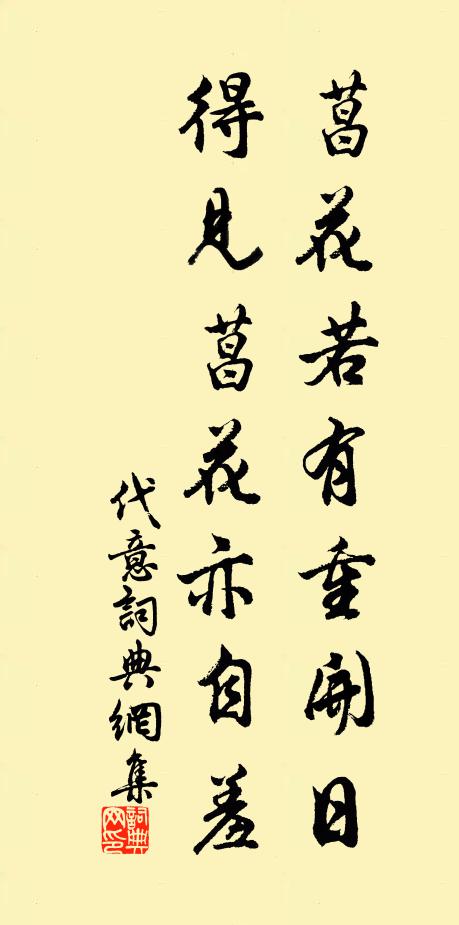 菖花若有重開日
得見菖花亦自羞
代意詞典網集
詞典網印